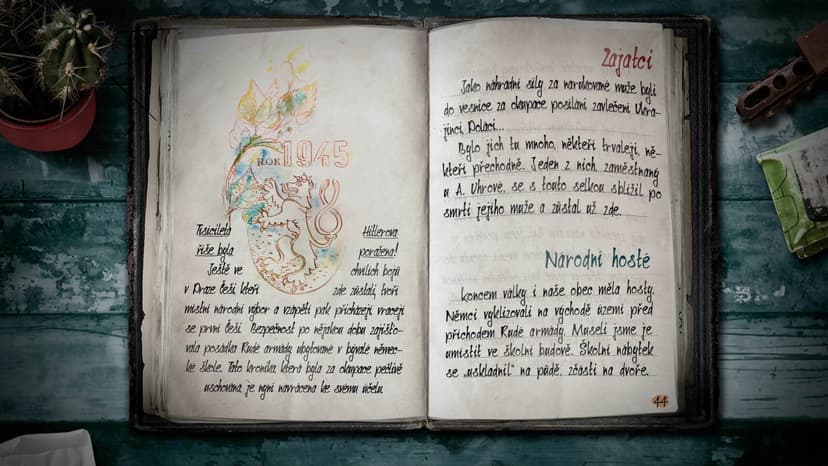 ROK 1945
Tisíciletá Hitlerova
říše byla poražena!
Ještě ve chvílích bojů
v Praze Češi, kteří zde zůstali, tvoří
místní národní výbor a vzápětí pak přicházejí, vracejí
se první Češi. Bezpečnost po nějakou dobu zajišťo-
vala posádka Rudé armády ubytované v bývalé němec-
ké škole. Tato kronika, která byla za okupace pečlivě
uschována, je nyní navrácena ke svému účelu.
Zajatci
Jako náhradní síly za narukované muže byli
do vesnice za okupace posíláni zavlečení Ukra-
jinci, Poláci...
Bylo jich tu mnoho, někteří trvaleji, ně-
kteří přechodně. Jeden z nich, zaměstnaný
u A. Uhrové, se s touto selkou sblížil po
smrti jejího muže a zůstal už zde.
Národní hosté
Koncem války i naše obec měla hosty.
Němci vyklizovali na východě území před
příchodem Rudé armády. Museli jsme je
umístit ve školní budově. Školní nábytek
se „uskladnil" na půdě, zčásti na dvoře.
44